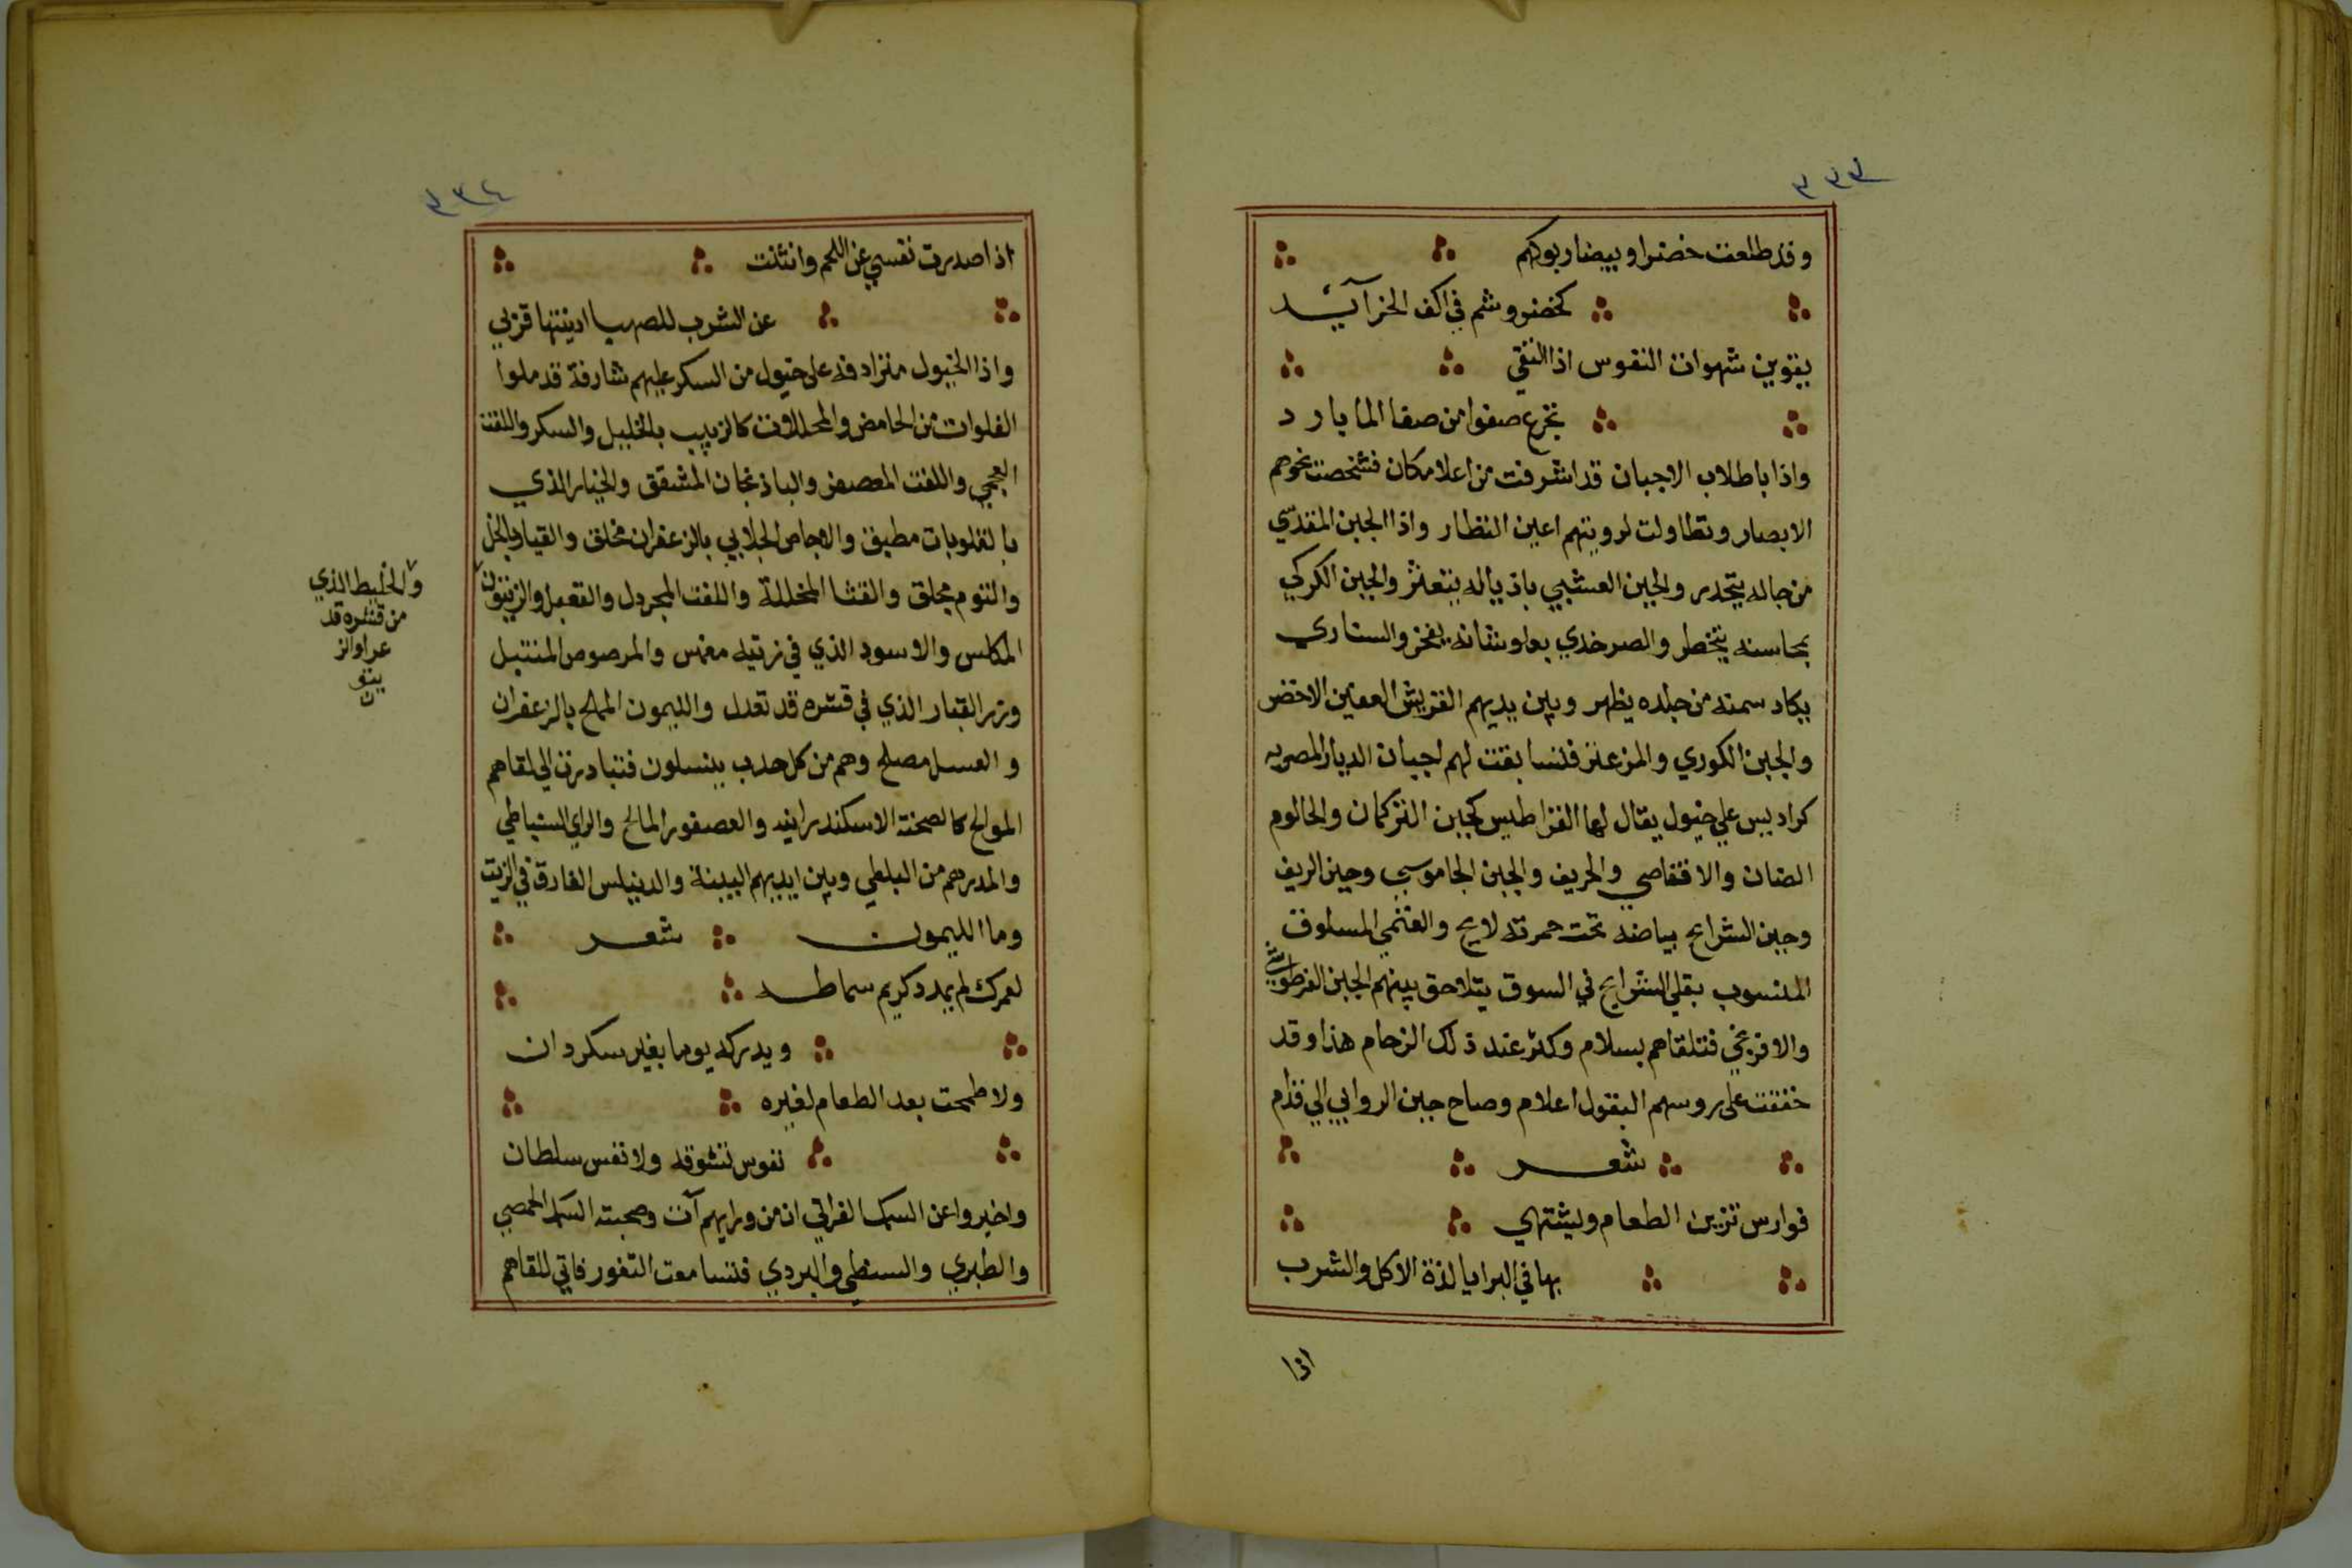 ٣٣٣
وقد طلعت خضرا وبيضا ربوكهم
كخضر وشم في اكف الخرآيد
يقوين شهوات النفوس اذا النقي
تجرع صفوا من صفا الما بارد
واذا باطلاب الاجبان قد اشرفت من اعلا مكان فشخصت نحوهم
الابصار وتطاولت لرويتهم اعين النظار واذا الجبن المقدسي
من جاله يتحدر والجبن العشبي باذياله يتعثر والجبن الكركي
بمحاسنه يتخطر والصرخدي بعلو شانه يفخر والسناري
يكاد سمنه من جلده يظهر وبين يديهم القريش العفين الاخضر
والجبن الكوري والمزعنز فلتسابقت لهم اجبان الديار المصريه
كراديس علي خيول يقال لها الفراطيس كجبن التركمان والحالوم
الضان والاقفاصي والحريف والجبن الجاموسي وجبن الريف
وجبن الشرايح بياضه تحت حمرته لايح والغنمي المسلوق
المنسوب بقلي الشرايح في السوق يتلاحق بينهم الجبن الفرطوشي
والافرنجي فتلقاهم بسلام وكثر عند ذلك الزحام هذا وقد
خفقت على روسهم البقول اعلام وصاح جبن الروابي الي قدام
شعر
فوارس تزين الطعام ويشتهي
بها في البرايا لذة الاكل والشرب
اذا
٣٣٤
اذا صدرت نفسي عن اللحم وانثنت
عن الشرب للصهبا ادينتها قربي
واذا الخيول متزادفه على خيول من السكر عليهم شارفة قد ملوا
الفلوات من الحامض والمحللات كالزبيب بالخليل والسكر واللفت
العجمي واللفت المعصفر والباذنجان المشقق والخيار الذي
بالقلوبات مطبق والاجاص الجلابي بالزعفران مخلق والقيار بالخل
والثوم مخلق والقثا المخللة واللفت المجردل والقعبل والزيتون
المكلس والاسود الذي في زيته مغمس والمرصوص المنتبل
وزر القبار الذي في قشره قد تعدل والليمون المملح بالزعفران
والعسل مصلح وهم من كل حدب ينسلون فتبادرت الي لقاهم
الموالح كالصحنة الاسكندرانيه والعصفور المالح والراي السنباطي
والمدرهم من البلطي وبين ايديهم البيينة والدنيلس الغارق في الزيت
وما الليمون شعر
لعمرك لم يمدد كريم سماطه
ويدركه يوما بغير سكردان
ولا طمحت بعد الطعام لغيره
نفوس تشوقه ولا نفس سلطان
واخبروا عن السمك الفراتي ان من ورايهم آت وصحبته السمك الحمصي
والطبري والسنطي والبردي فلتسامعت الثغور فاتي للقاهم
والخليط الذي
من قشره قد
عرا والز
يتو
ن